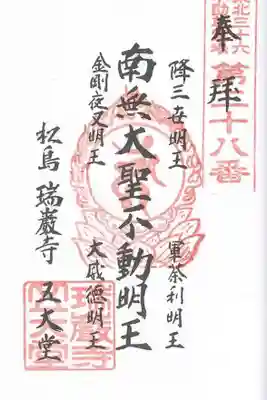 奉拝
東北三十六
不動尊霊場
第二十八番
降三世明王
軍荼利明王
南無大聖不動明王
金剛夜叉明王
大威徳明王
松島 瑞巌寺
五大堂
瑞巌寺
五大堂